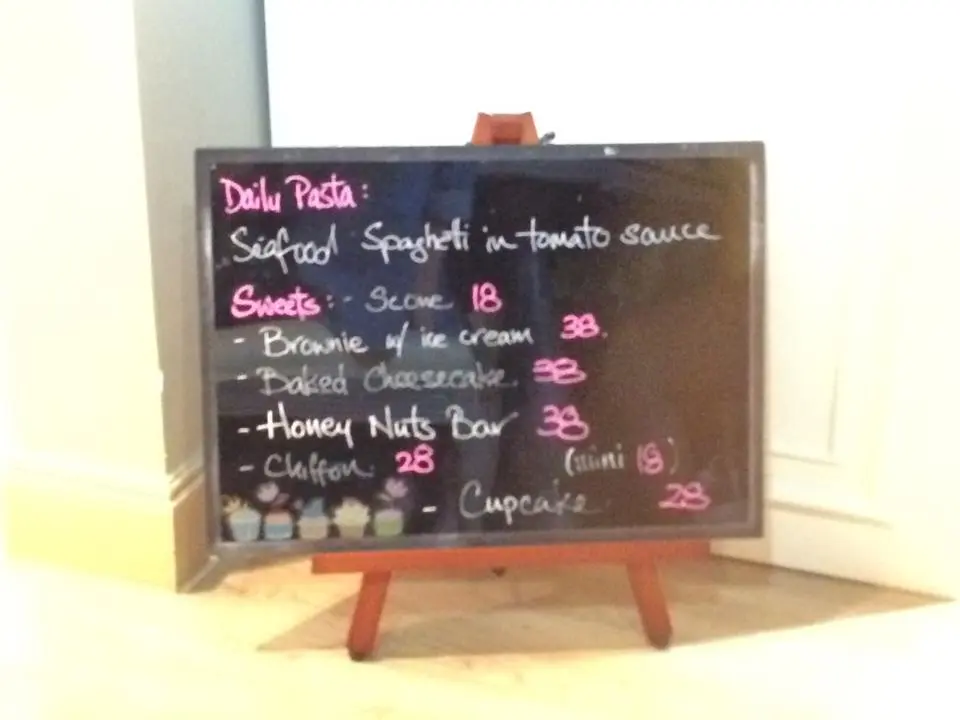 Daily Pasta:
Seafood Spagheti in tomato sauce
Sweets: - Scone 18
- Brownie w/ ice cream 38.
- Baked Cheesecake. 38
- Honey Nuts Bar 38
- Chiffon. 28 (mini 18)
- Cupcake 28